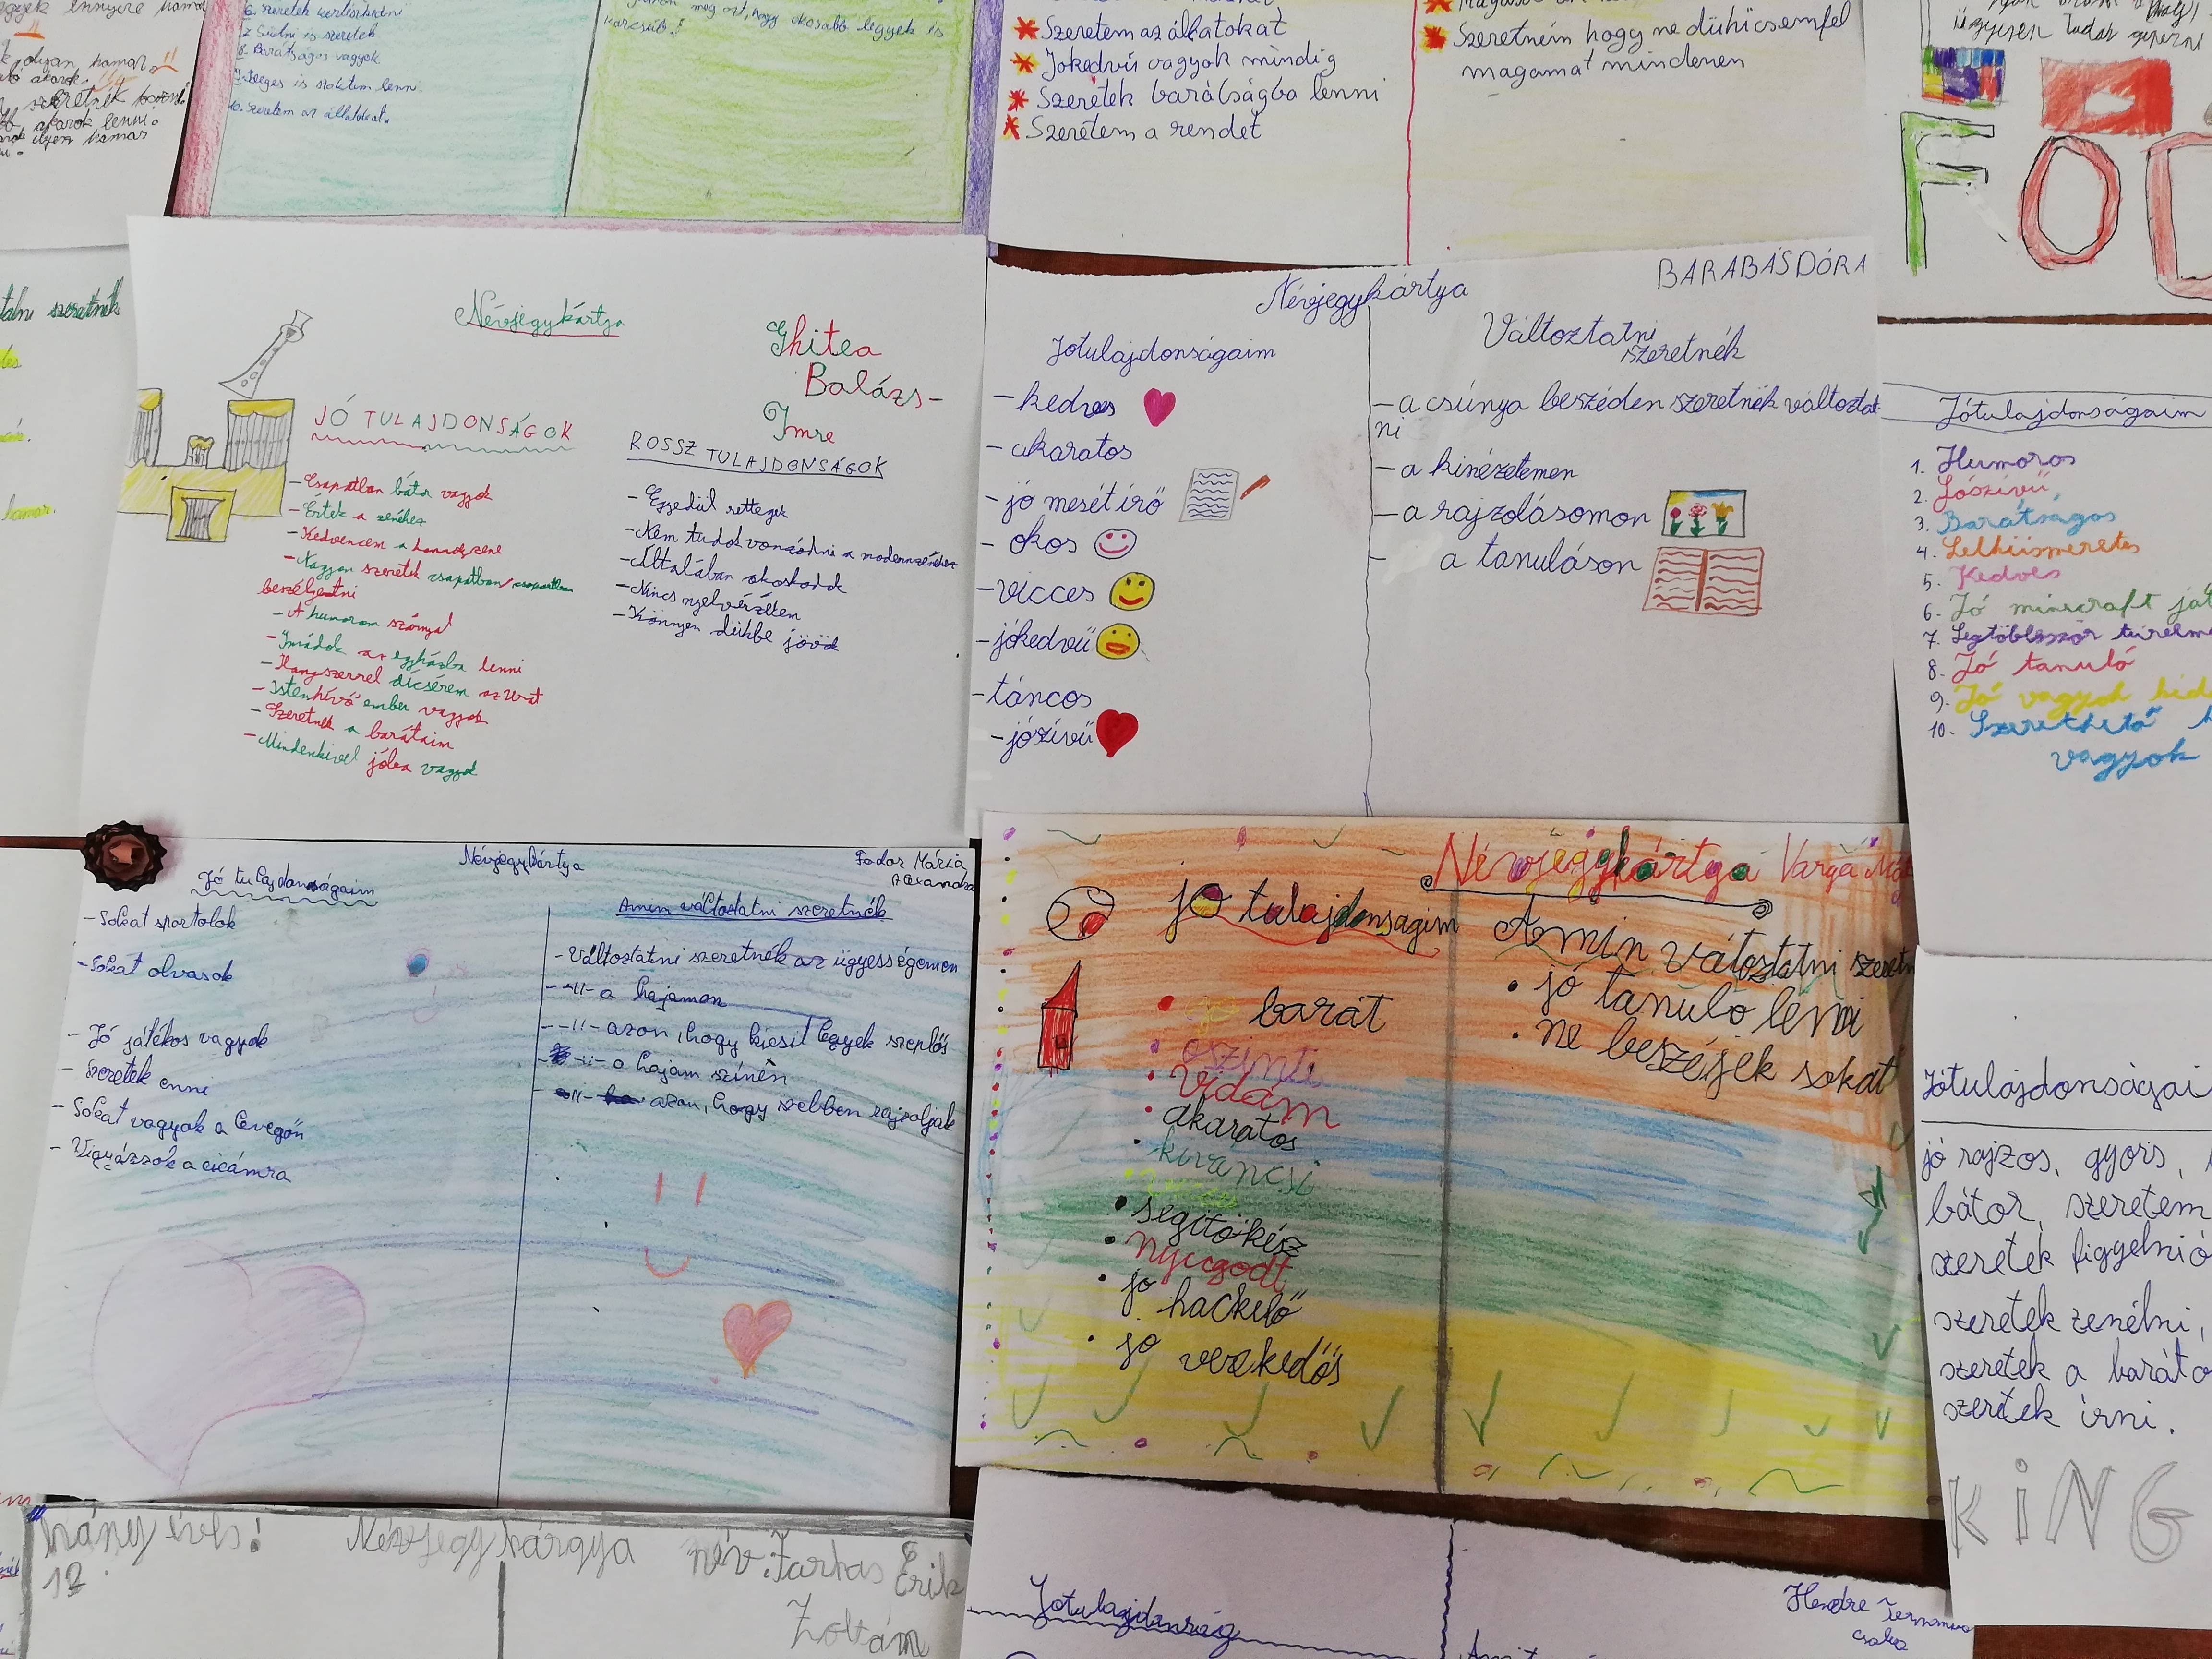 6. Szeretek kertészkedni
7. Sütni is szeretek
8. Barátságos vagyok
10. Szeretem az állatokat.
meg azt, hogy okosabb legyek is
karcsúb.!
Szeretem az állatokat
Jókedvű vagyok mindig
Szeretek barátságba lenni
Szeretem a rendet
Szeretném hogy ne dühücsemfel
magamat mindenen
FO
Névjegykártya
Ghitea
Balázs-
Imre
JÓ TULAJDONSÁGOK
- Csapatban bátor vagyok
- Értek a zenéhez
- Kedvencem a
- Nagyon szeretek csapatban
beszélgetni
- A humorom szárnyal
- Imádok az egyházba lenni
- Hangszerrel dícsérem az Urat
- Istenhívő ember vagyok
- Szeretnek a barátaim
- Mindenkivel jóba vagyok
ROSSZ TULAJDONSÁGOK
- Egyedül rettegek
- Nem tudok vonzódni a modernzenéhez
- Általában okoskodok
- Nincs nyelvérzékem
- Könnyen dühbe jövök
Névjegykártya
BARABÁS DÓRA
Jótulajdonságaim
- kedves
- akaratos
- jó mesét író
- okos
- vicces
- jókedvű
- táncos
- jószívű
Változtatni
szeretnék
- a csúnya beszéden szeretnék változtat
ni
- a kinézetemen
- a rajzolásomon
- a tanuláson
Jótulajdonságaim
1. Humoros
2. Jószívű
3. Barátságos
4. Lelkiismeretes
5. Kedves
6. Jó minecraft ját
7. Legtöbbször türelme
8. Jó tanuló
9. Jó vagyok
10. Szerethető
vagyok
Névjegykártya
Fodor Mária
Alexandra
Jó tulajdonságaim
- Sokat sportolok
- Sokat olvasok
- Jó játékos vagyok
- Szeretek enni
- Sokat vagyok a levegőn
- Vigyázzok a cicámra
Amin változtatni szeretnék
- Változtatni szeretnék az ügyességemen
- -11- a hajamon
- -11- azon, hogy kicsit legyek szeplős
-11- a hajam színén
-11- azon, hogy szebben rajzoljak
Névjegykártya Varga
jó tulajdonsagim
barát
őszinti
vidám
akaratos
kiváncsi
segítőkész
nyugodt
jo hackelő
jo verekedős
Amin vátoztatni szeretn
jó tanuló lenni
ne beszéjek sokat
Jótulajdonságai
jó rajzos, gyors,
bátor, szeretem
szeretek figyelni
szeretek zenélni,
szeretek a baráto
szeretek írni.
KiNG
hány éves!
12
Névjegykárgya
név: Farkas Erik
Zoltán
Jotulajdonság
Hendre
Csaba